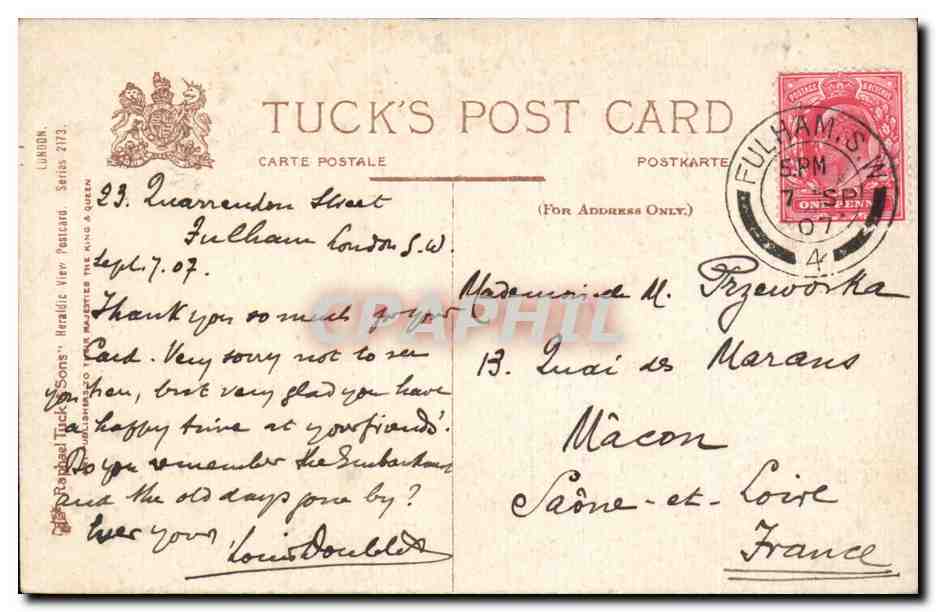 TUCK'S POST CARD
CARTE POSTALE
POSTKARTE
(FOR ADDRESS ONLY.)
POSTAGE & REVENUE
ONE PENNY
FULHAM. S.W
5 PM
7 SP
07
4
23. Quarrendon Street
Fulham London S.W.
Sept. 7. 07.
Thank you so much for your
Card. Very sorry not to see
you here, but very glad you have
a happy time at your friends'.
Do you remember the
and the old days gone by?
Ever yours,
Louis
Mademoiselle M. Przeworska
13. Quai des Marans
Mâcon
Saône-et-Loire
France
CPAPHIL
LONDON.
Raphael Tuck & Sons' Heraldic View Postcard. Series 2173.
PUBLISHERS TO THEIR MAJESTIES THE KING & QUEEN